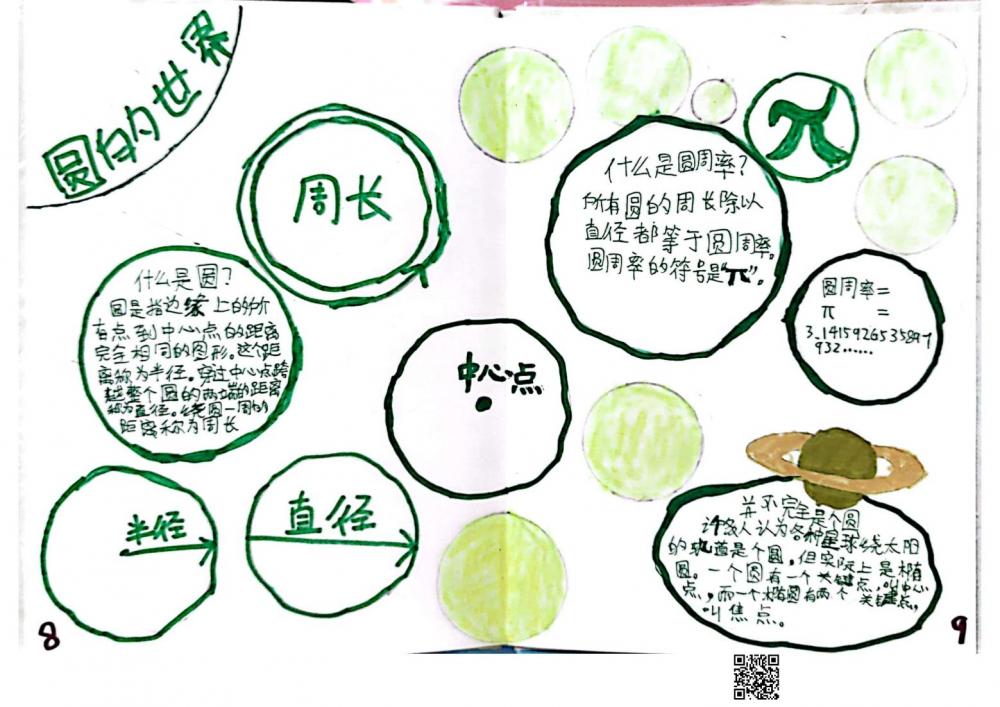 圆的世界
周长
什么是圆?
圆是指边缘上的所
有点到中心点的距离
完全相同的图形。这个距
离称为半径。穿过中心点跨
越整个圆的两端的距离
称为直径。绕圆一周的
距离称为周长
半径
直径
8
中心点
什么是圆周率?
所有圆的周长除以
直径都等于圆周率。
圆周率的符号是“π”。
π
圆周率=
π =
3.1415926535897
932……
并不完全是个圆
许多人认为各种星球绕太阳
的轨道是个圆,但实际上是椭
圆。一个圆有一个关键点,叫中心
点,而一个椭圆有两个关键点,
叫焦点。
9